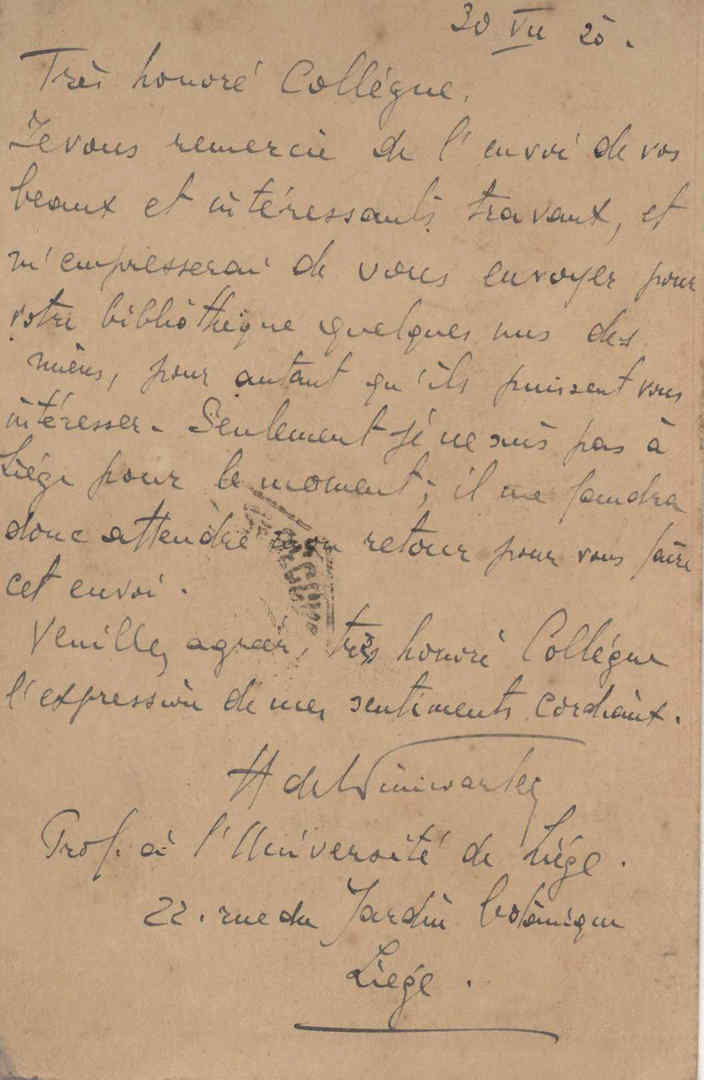 30 VII 25.
Très honoré Collégue.
Je vous remercie de l'envoi de vos
beaux et intéressants travaux, et
m'empresserai de vous envoyer pour
votre bibliothèque quelques uns des
miens, pour autant qu'ils puissent vous
intéresser. Seulement je ne suis pas à
Liége pour le moment; il me faudra
donc attendre mon retour pour vous faire
cet envoi.
Veuillez agréer, très honoré Collégue
l'expression de mes sentiments cordiaux.
H de Winiwarter
Prof. à l'Université de Liége.
22. rue du Jardin botanique
Liége.